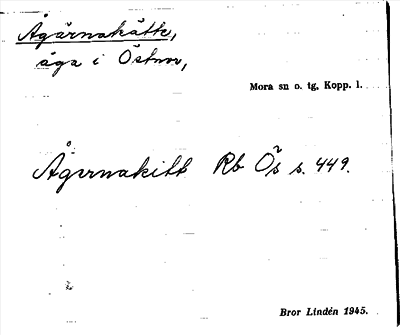 Ågärnakätte,
äga i Östnor,
Mora sn o. tg, Kopp. l.
Ågernakitt Rb Ös s. 449.
Bror Lindén 1945.